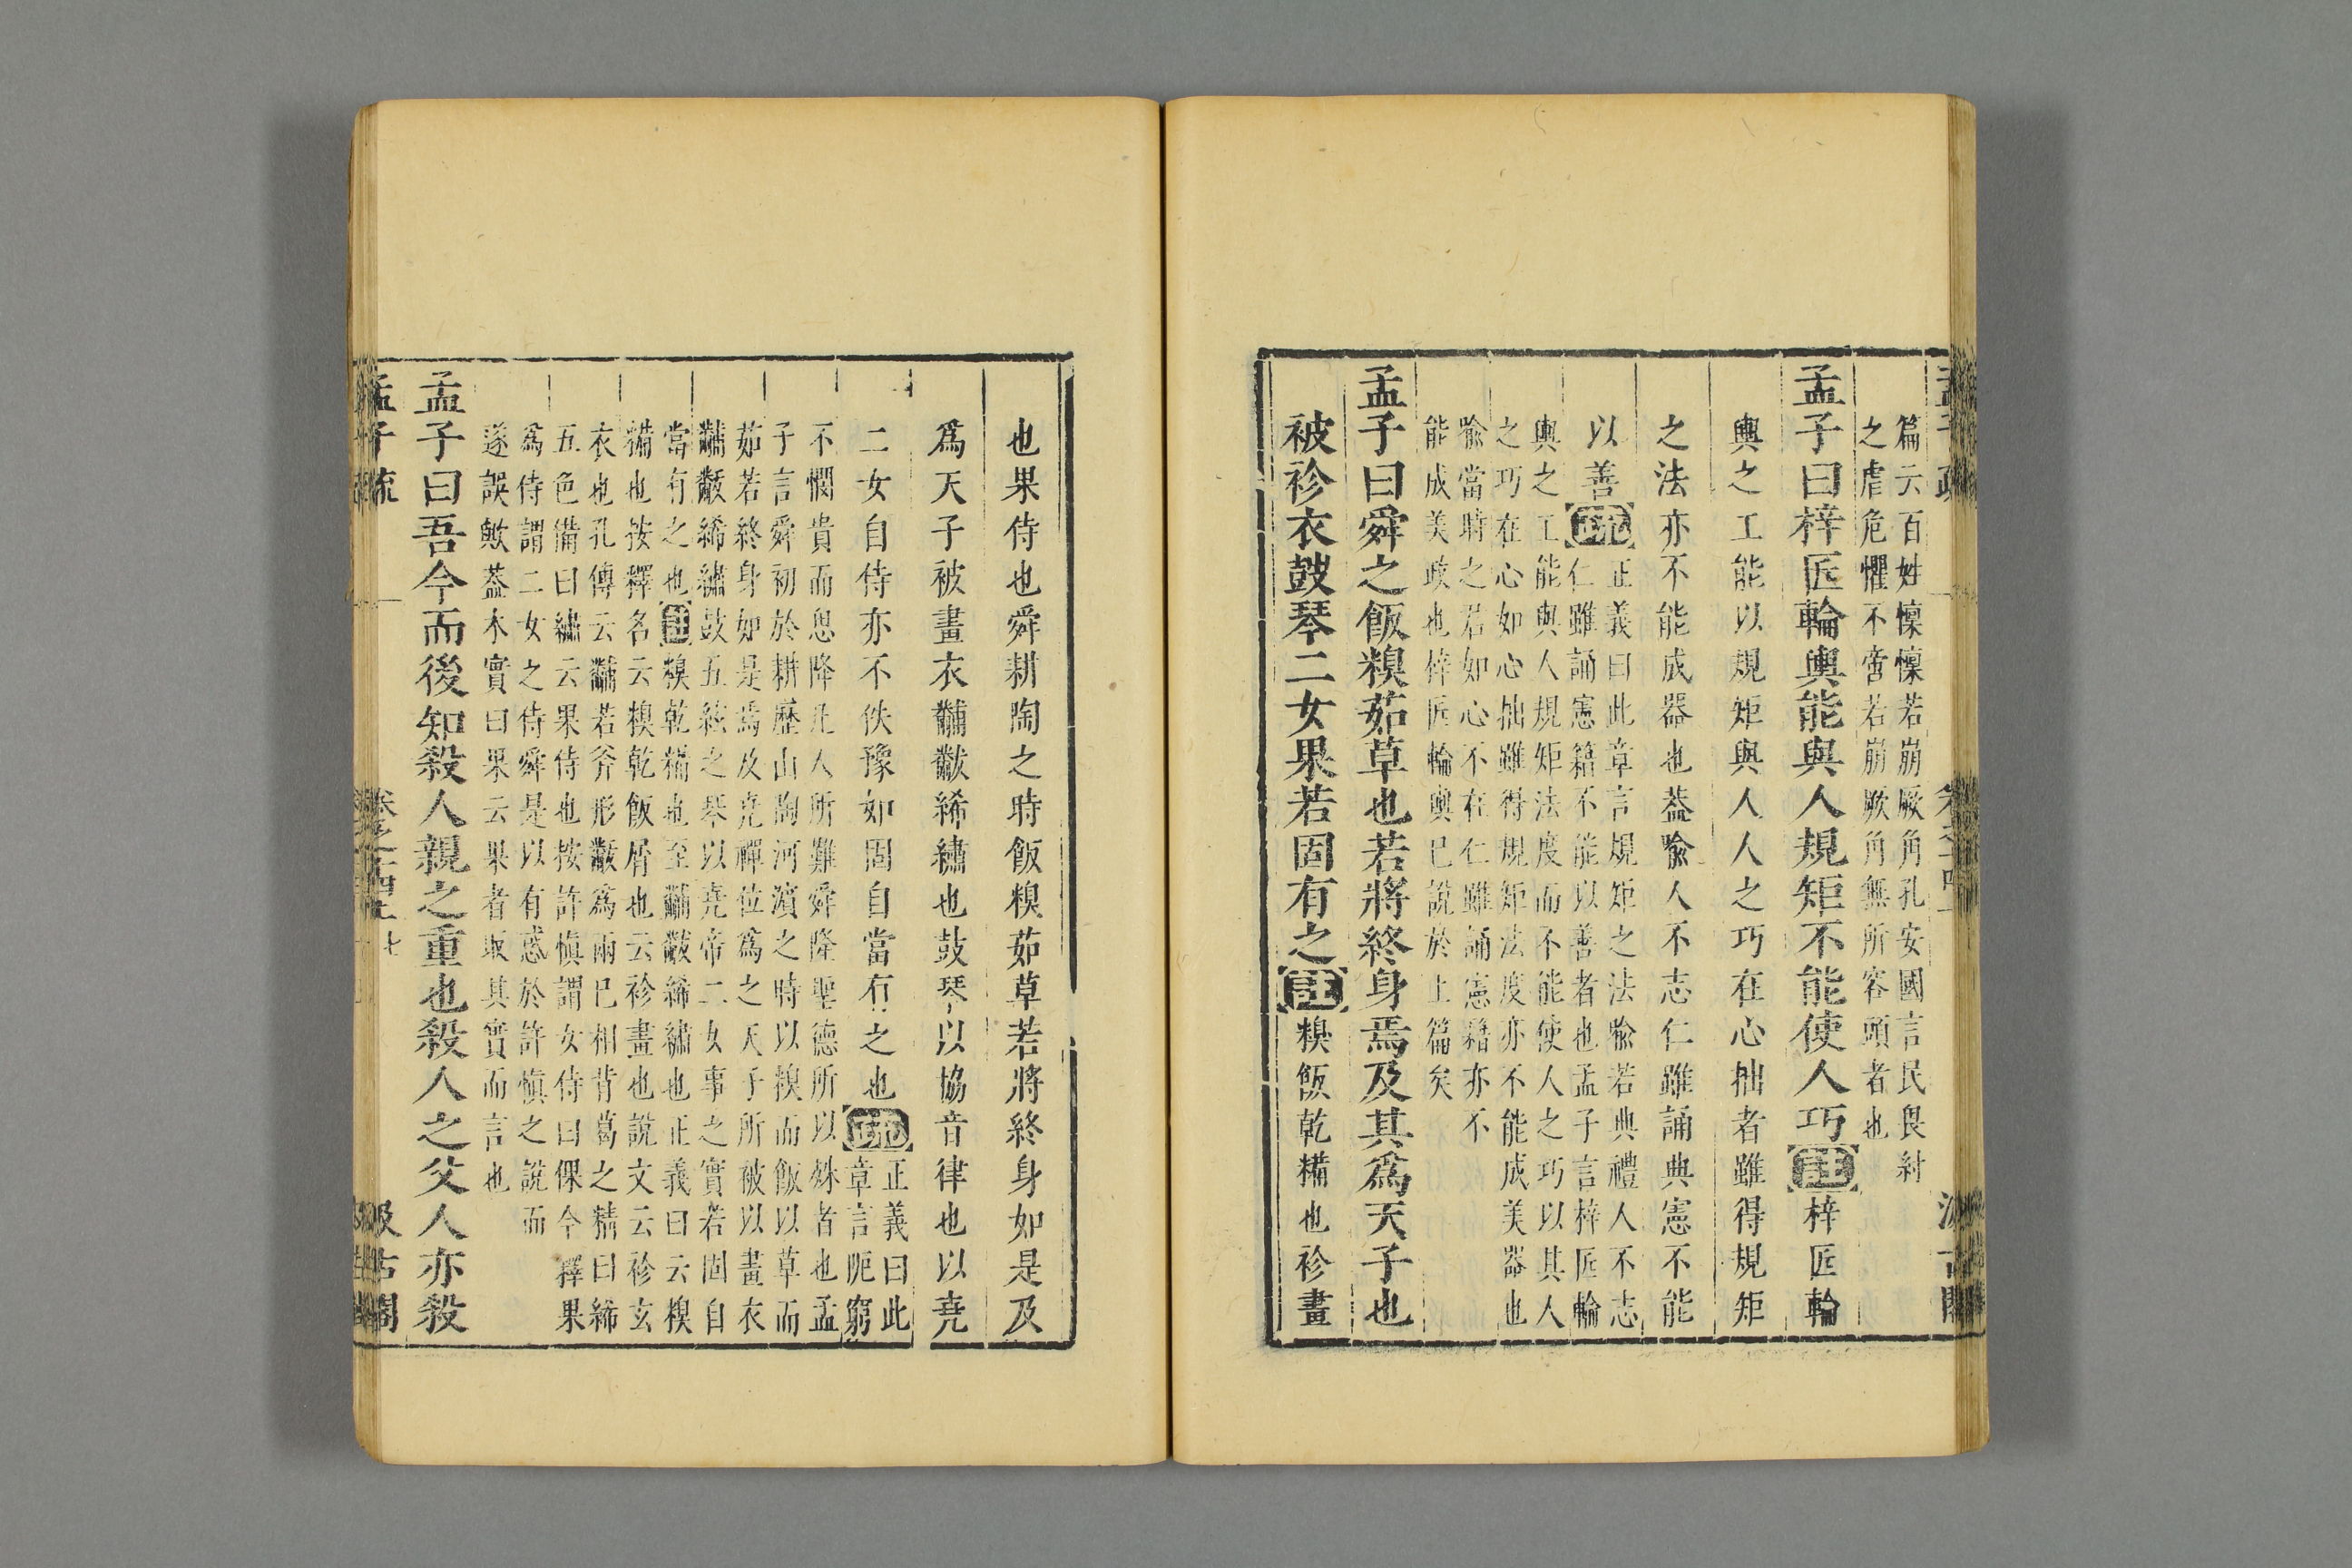 篇云百姓懍懍若崩厥角孔安國言民畏紂
之虐危懼不啻若崩厥角無所容頭者也
孟子曰梓匠輪輿能與人規矩不能使人巧註梓匠輪
輿之工能以規矩與人人之巧在心拙者雖得規矩
之法亦不能成器也蓋喻人不志仁雖誦典憲不能
以善疏
正義曰此章言規矩之法喻若典禮人不志
仁雖誦憲籍不能以善者也孟子言梓匠輪
輿之工能與人規矩法度而不能使人之巧以其人
之巧在心如心拙雖得規矩法度亦不能成美器也
喻當時之君如心不在仁雖誦憲籍亦不
能成美政也梓匠輪輿已說於上篇矣
孟子曰舜之飯糗茹草也若將終身焉及其爲天子也
被袗衣鼓琴二女果若固有之註糗飯乾糒也袗畫
也果侍也舜耕陶之時飯糗茹草若將終身如是及
爲天子被畫衣黼黻絺繡也鼓琴以協音律也以堯
二女自侍亦不佚豫如固自當有之也疏
正義曰此
章言阨窮
不憫貴而思降凡人所難舜隆聖德所以殊者也孟
子言舜初於耕歷山陶河濱之時以糗而飯以草而
茹若終身如是焉及堯禪位爲之天子所被以畫衣
黼黻絺繡鼓五絃之琴以堯帝二女事之實若固自
當有之也註糗乾糒也至黼黻絺繡也正義曰云糗
糒也按釋名云糗乾飯屑也云袗畫也說文云袗玄
衣也孔傳云黼若斧形黻爲兩已相背葛之精曰絺
五色備曰繡云果侍也按許慎謂女侍曰倮今釋果
爲侍謂二女之侍舜是以有惑於許慎之說而
遂誤歟蓋木實曰果云果者取其實而言也
孟子曰吾今而後知殺人親之重也殺人之父人亦殺
孟子疏
卷之十四上
七
汲古閣